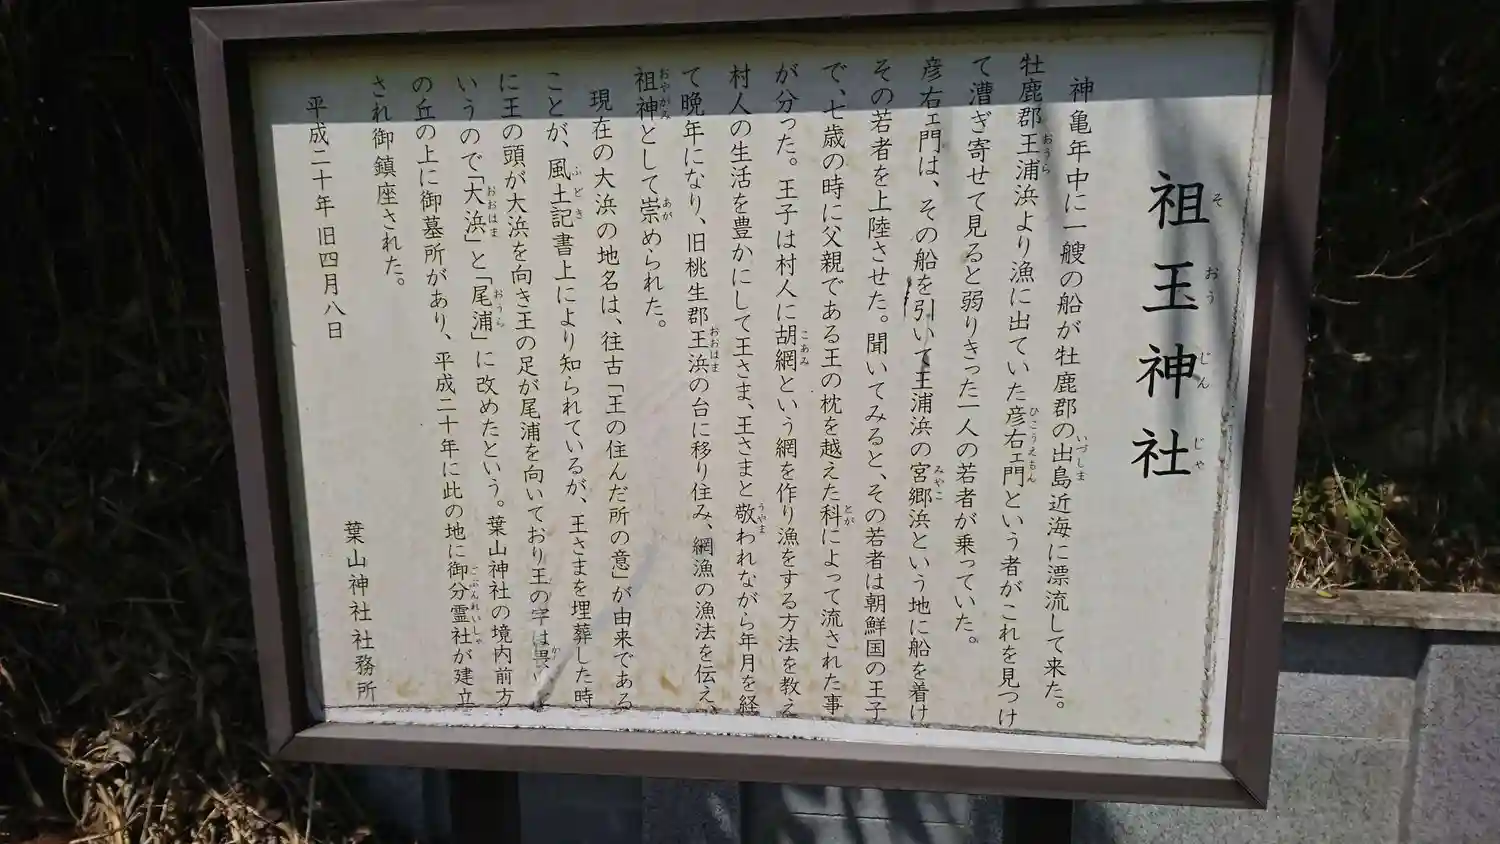 祖王神社
神亀年中に一艘の船が牡鹿郡の出島近海に漂流して来た。
牡鹿郡王浦浜より漁に出ていた彦右ヱ門という者がこれを見つけ
て漕ぎ寄せて見ると弱りきった一人の若者が乗っていた。
彦右ヱ門は、その船を引いて王浦浜の宮郷浜という地に船を着け
その若者を上陸させた。聞いてみると、その若者は朝鮮国の王子
で、七歳の時に父親である王の枕を越えた科によって流された事
が分った。王子は村人に胡網という網を作り漁をする方法を教え
村人の生活を豊かにして王さま、王さまと敬われながら年月を経
て晩年になり、旧桃生郡王浜の台に移り住み、網漁の漁法を伝え、
祖神として崇められた。
現在の大浜の地名は、往古「王の住んだ所の意」が由来である
ことが、風土記書上により知られているが、王さまを埋葬した時
に王の頭が大浜を向き王の足が尾浦を向いており王の字は畏
いうので「大浜」と「尾浦」に改めたという。葉山神社の境内前方
の丘の上に御墓所があり、平成二十年に此の地に御分霊社が建立
され御鎮座された。
平成二十年旧四月八日
葉山神社社務所